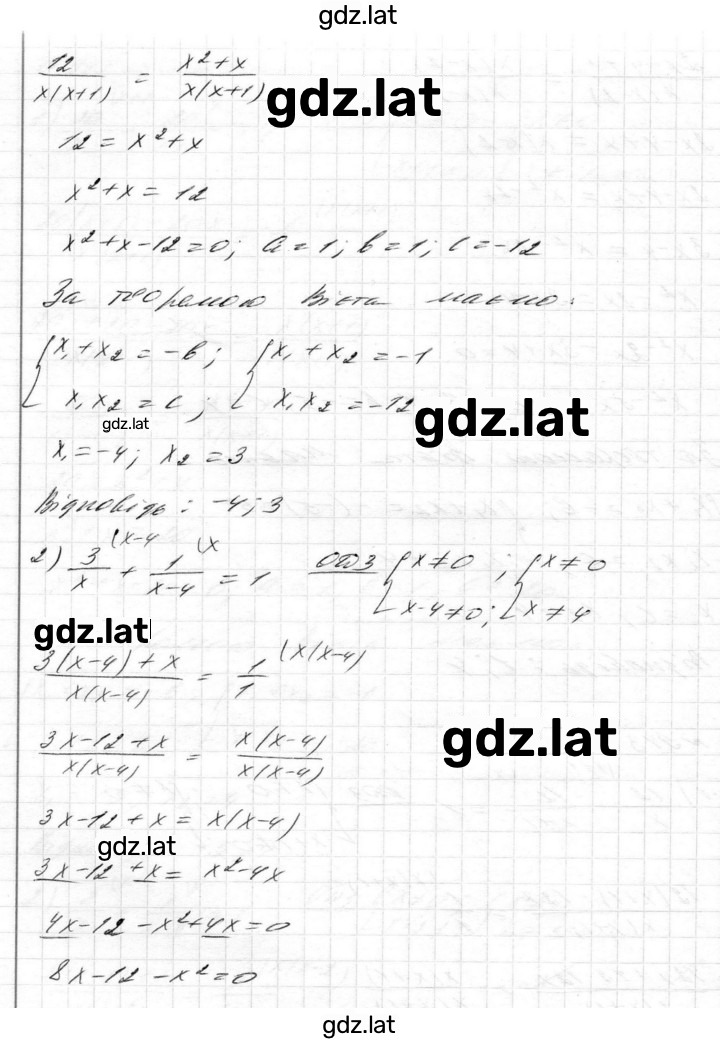 gdz.lat
12/x(x+1) = x²+x/x(x+1)
gdz.lat
12 = x²+x
x²+x = 12
x²+x-12=0; a=1; b=1; c=-12
За теоремою Вієта маємо:
{x₁+x₂=-b; {x₁+x₂=-1
x₁x₂=c; x₁x₂=-12
gdz.lat
gdz.lat
x₁=-4; x₂=3
Відповідь: -4; 3
2) 3/x (x-4 + 1/x-4 (x = 1 ОДЗ {x≠0; {x≠0
x-4≠0; x≠4
gdz.lat
3(x-4)+x/x(x-4) = 1/1 (x(x-4)
3x-12+x/x(x-4) = x(x-4)/x(x-4)
gdz.lat
3x-12+x = x(x-4)
gdz.lat
3x-12+x= x²-4x
4x-12-x²+4x=0
8x-12-x²=0
gdz.lat